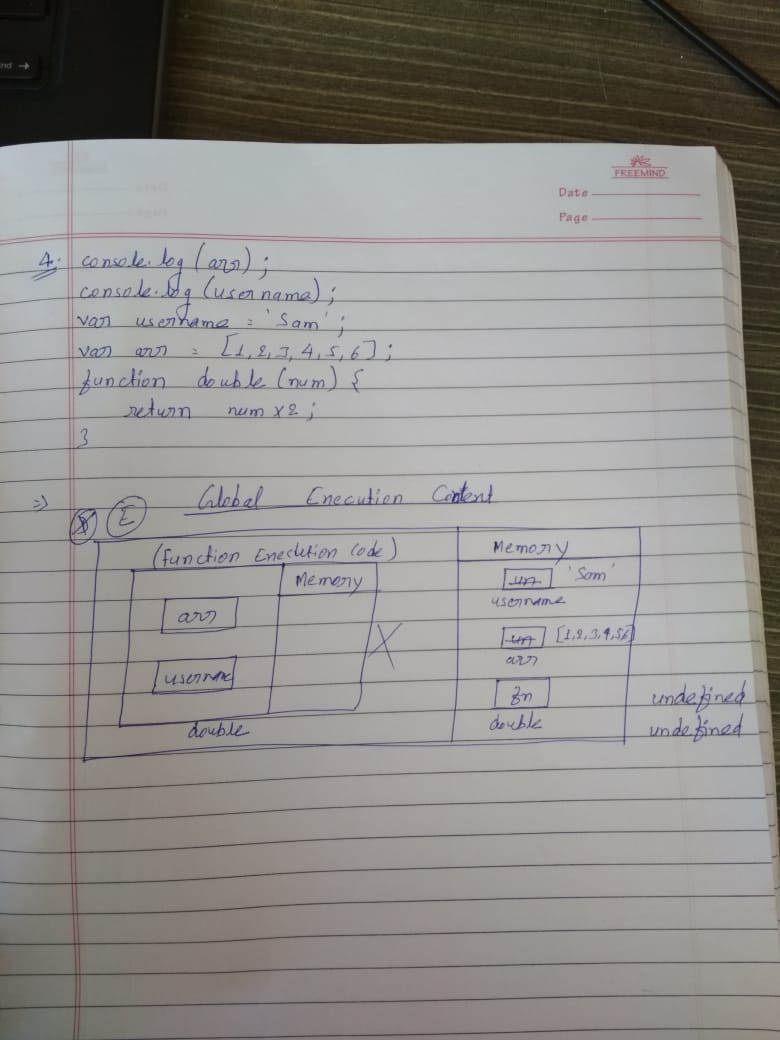 nd →
FREEMIND
Date
Page
4. console.log (arr) ;
console.log (username) ;
var username = 'Sam' ;
var arr = [1, 2, 3, 4, 5, 6] ;
function double (num) {
return num x 2 ;
}
=) Global Execution Context
E
(function Execution Code)
Memory
Memory
un 'Sam'
username
arr
un [1,2,3,4,5,6]
arr
username
fn undefined
double
double undefined